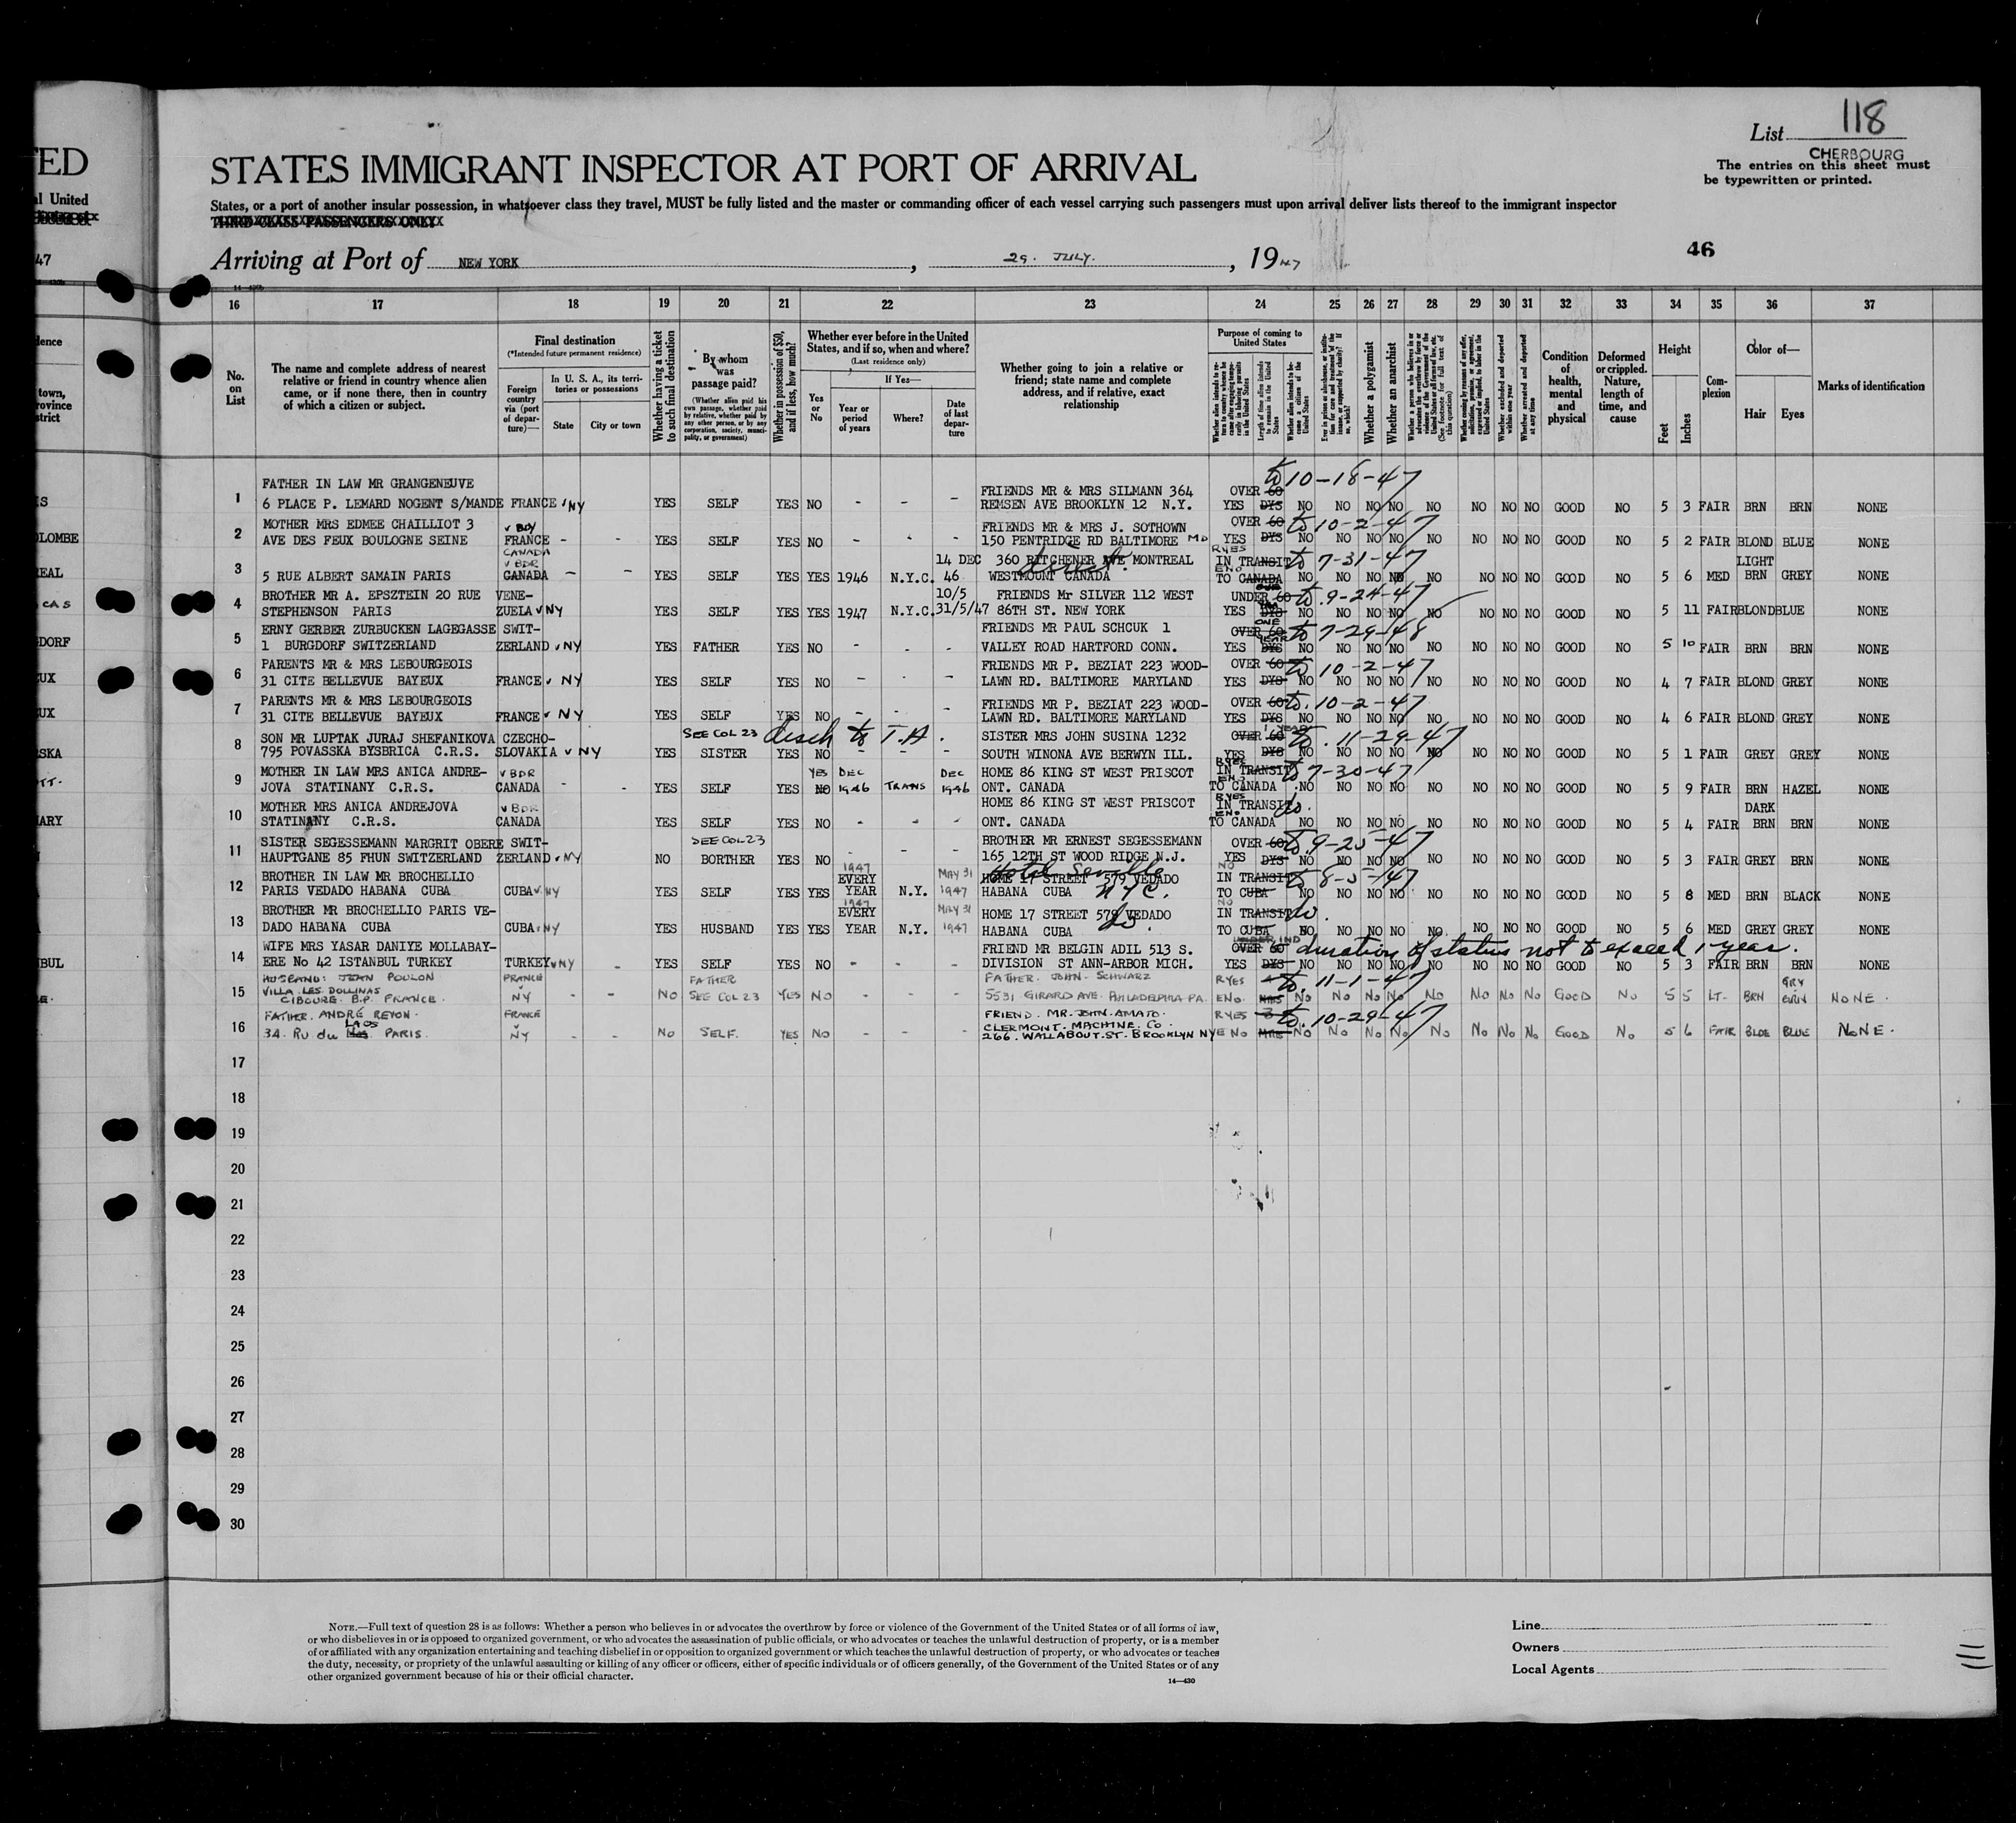 List 118
CHERBOURG
The entries on this sheet must
be typewritten or printed.
TED
STATES IMMIGRANT INSPECTOR AT PORT OF ARRIVAL
al United
States, or a port of another insular possession, in whatsoever class they travel, MUST be fully listed and the master or commanding officer of each vessel carrying such passengers must upon arrival deliver lists thereof to the immigrant inspector
THIRD CLASS PASSENGERS ONLY
47
Arriving at Port of NEW YORK, 29. JULY. , 1947
46
16 17 18 19 20 21 22 23 24 25 26 27 28 29 30 31 32 33 34 35 36 37
No. on List
The name and complete address of nearest relative or friend in country whence alien came, or if none there, then in country of which a citizen or subject.
Final destination
(*Intended future permanent residence)
Foreign country via (port of departure)—
In U. S. A., its territories or possessions
State City or town
Whether having a ticket to such final destination
By whom was passage paid?
(Whether alien paid his own passage, whether paid by relative, whether paid by any other person, or by any corporation, society, municipality, or government)
Whether in possession of $50, and if less, how much?
Whether ever before in the United States, and if so, when and where?
(Last residence only)
Yes or No
If Yes—
Year or period of years
Where?
Date of last departure
Whether going to join a relative or friend; state name and complete address, and if relative, exact relationship
Purpose of coming to United States
Whether alien intends to return to country whence he came after engaging temporarily in laboring pursuits in the United States
Length of time alien intends to remain in the United States
Whether alien intends to become a citizen of the United States
Ever in prison or almshouse, or institution for care and treatment of the insane, or supported by charity? If so, which?
Whether a polygamist
Whether an anarchist
Whether a person who believes in or advocates the overthrow by force or violence of the Government of the United States or all forms of law, etc. (See footnote for full text of this question)
Whether coming by reason of any offer, solicitation, promise, or agreement, expressed or implied, to labor in the United States
Whether excluded and deported within one year
Whether arrested and deported at any time
Condition of health, mental and physical
Deformed or crippled. Nature, length of time, and cause
Height
Feet Inches
Complexion
Color of—
Hair Eyes
Marks of identification
to 10-18-47
FATHER IN LAW MR GRANGENEUVE FRIENDS MR & MRS SILMANN 364 OVER 60
1 6 PLACE P. LEMARD NOGENT S/MANDE FRANCE NY YES SELF YES NO - - - REMSEN AVE BROOKLYN 12 N.Y. YES DYS NO NO NO NO NO NO NO NO GOOD NO 5 3 FAIR BRN BRN NONE
MOTHER MRS EDMEE CHAILLIOT 3 FRIENDS MR & MRS J. SOTHOWN OVER 60 to 10-2-47
2 AVE DES FEUX BOULOGNE SEINE FRANCE - - YES SELF YES NO - - - 150 PENTRIDGE RD BALTIMORE MD YES DYS NO NO NO NO NO NO NO NO GOOD NO 5 2 FAIR BLOND BLUE NONE
CANADA V BDR 14 DEC 360 KITCHENER AVE MONTREAL street. R YES IN TRANSIT to 7-31-47 LIGHT
3 5 RUE ALBERT SAMAIN PARIS CANADA - - YES SELF YES YES 1946 N.Y.C. 46 WESTMOUNT CANADA E NO TO CANADA NO NO NO NO NO NO NO NO GOOD NO 5 6 MED BRN GREY NONE
BROTHER MR A. EPSZTEIN 20 RUE VENE- 10/5 FRIENDS Mr SILVER 112 WEST UNDER 60 to 9-24-47
4 STEPHENSON PARIS ZUELA NY YES SELF YES YES 1947 N.Y.C. 31/5/47 86TH ST. NEW YORK YES DYS NO NO NO NO NO NO NO NO GOOD NO 5 11 FAIR BLOND BLUE NONE
ERNY GERBER ZURBUCKEN LAGEGASSE SWIT- FRIENDS MR PAUL SCHCUK 1 OVER 60 ONE YEAR to 7-29-48
5 1 BURGDORF SWITZERLAND ZERLAND NY YES FATHER YES NO - - - VALLEY ROAD HARTFORD CONN. YES DYS NO NO NO NO NO NO NO NO GOOD NO 5 10 FAIR BRN BRN NONE
PARENTS MR & MRS LEBOURGEOIS FRIENDS MR P. BEZIAT 223 WOOD- OVER 60 to 10-2-47
6 31 CITE BELLEVUE BAYEUX FRANCE NY YES SELF YES NO - - - LAWN RD. BALTIMORE MARYLAND YES DYS NO NO NO NO NO NO NO NO GOOD NO 4 7 FAIR BLOND GREY NONE
PARENTS MR & MRS LEBOURGEOIS FRIENDS MR P. BEZIAT 223 WOOD- OVER 60 to. 10-2-47
7 31 CITE BELLEVUE BAYEUX FRANCE NY YES SELF YES NO - - - LAWN RD. BALTIMORE MARYLAND YES DYS NO NO NO NO NO NO NO NO GOOD NO 4 6 FAIR BLOND GREY NONE
SON MR LUPTAK JURAJ SHEFANIKOVA CZECHO- SEE COL 23 disch to T.A. SISTER MRS JOHN SUSINA 1232 OVER 60 1 YEAR to. 11-29-47
8 795 POVASSKA BYSBRICA C.R.S. SLOVAKIA V NY YES SISTER YES NO - - - SOUTH WINONA AVE BERWYN ILL. YES DYS NO NO NO NO NO NO NO NO GOOD NO 5 1 FAIR GREY GREY NONE
MOTHER IN LAW MRS ANICA ANDRE- V BDR YES DEC DEC HOME 86 KING ST WEST PRISCOT R YES IN TRANSIT to 7-30-47
9 JOVA STATINANY C.R.S. CANADA - - YES SELF YES NO 1946 TRANS 1946 ONT. CANADA E NO TO CANADA NO NO NO NO NO NO NO NO GOOD NO 5 9 FAIR BRN HAZEL NONE
MOTHER MRS ANICA ANDREJOVA V BDR HOME 86 KING ST WEST PRISCOT R YES IN TRANSIT do. DARK
10 STATINANY C.R.S. CANADA YES SELF YES NO - - - ONT. CANADA E NO TO CANADA NO NO NO NO NO NO NO NO GOOD NO 5 4 FAIR BRN BRN NONE
SISTER SEGESSEMANN MARGRIT OBERE SWIT- SEE COL 23 BROTHER MR ERNEST SEGESSEMANN OVER 60 to 9-25-47
11 HAUPTGANE 85 FHUN SWITZERLAND ZERLAND NY NO BORTHER YES NO - - - 165 12TH ST WOOD RIDGE N.J. YES DYS NO NO NO NO NO NO NO NO GOOD NO 5 3 FAIR GREY BRN NONE
BROTHER IN LAW MR BROCHELLIO 1947 EVERY MAY 31 HOME 17 STREET 579 VEDADO Hotel Seville NO IN TRANSIT to 8-5-47
12 PARIS VEDADO HABANA CUBA CUBA NY YES SELF YES YES YEAR N.Y. 1947 HABANA CUBA NYC. TO CUBA NO NO NO NO NO NO NO NO GOOD NO 5 8 MED BRN BLACK NONE
BROTHER MR BROCHELLIO PARIS VE- 1947 EVERY MAY 31 HOME 17 STREET 579 VEDADO NO IN TRANSIT do.
13 DADO HABANA CUBA CUBA NY YES HUSBAND YES YES YEAR N.Y. 1947 HABANA CUBA do. TO CUBA NO NO NO NO NO NO NO NO GOOD NO 5 6 MED GREY GREY NONE
WIFE MRS YASAR DANIYE MOLLABAY- FRIEND MR BELGIN ADIL 513 S. OVER 60 duration of status not to exceed 1 year.
14 ERE No 42 ISTANBUL TURKEY TURKEY NY - YES SELF YES NO - - - DIVISION ST ANN-ARBOR MICH. YES DYS NO NO NO NO NO NO NO NO GOOD NO 5 3 FAIR BRN BRN NONE
HUSBAND: JEAN POULON FRANCE FATHER FATHER. JOHN. SCHWARZ R YES to. 11-1-47 GRY
15 VILLA LES DOLLINAS NY - - NO SEE COL 23 YES NO - - - 5531 GIRARD AVE. PHILADELPHIA PA. E NO. MOS NO NO NO NO NO NO NO NO GOOD NO 5 5 LT- BRN GRN NONE.
CIBOURE. B.P. FRANCE.
FATHER. ANDRÉ REVON. FRANCE FRIEND. MR. JOHN. AMATO. R YES 3 to. 10-29-47
CLERMONT. MACHINE. CO.
16 34. RU du LAOS PARIS. NY - - NO SELF. YES NO - - - 266. WALLABOUT. ST. BROOKLYN NY E NO MOS NO NO NO NO NO NO NO NO GOOD NO 5 6 FAIR BLDE BLUE NONE.
17
18
19
20
21
22
23
24
25
26
27
28
29
30
NOTE.—Full text of question 28 is as follows: Whether a person who believes in or advocates the overthrow by force or violence of the Government of the United States or of all forms of law,
or who disbelieves in or is opposed to organized government, or who advocates the assassination of public officials, or who advocates or teaches the unlawful destruction of property, or is a member
of or affiliated with any organization entertaining and teaching disbelief in or opposition to organized government or which teaches the unlawful destruction of property, or who advocates or teaches
the duty, necessity, or propriety of the unlawful assaulting or killing of any officer or officers, either of specific individuals or of officers generally, of the Government of the United States or of any
other organized government because of his or their official character.
14—430
Line
Owners
Local Agents